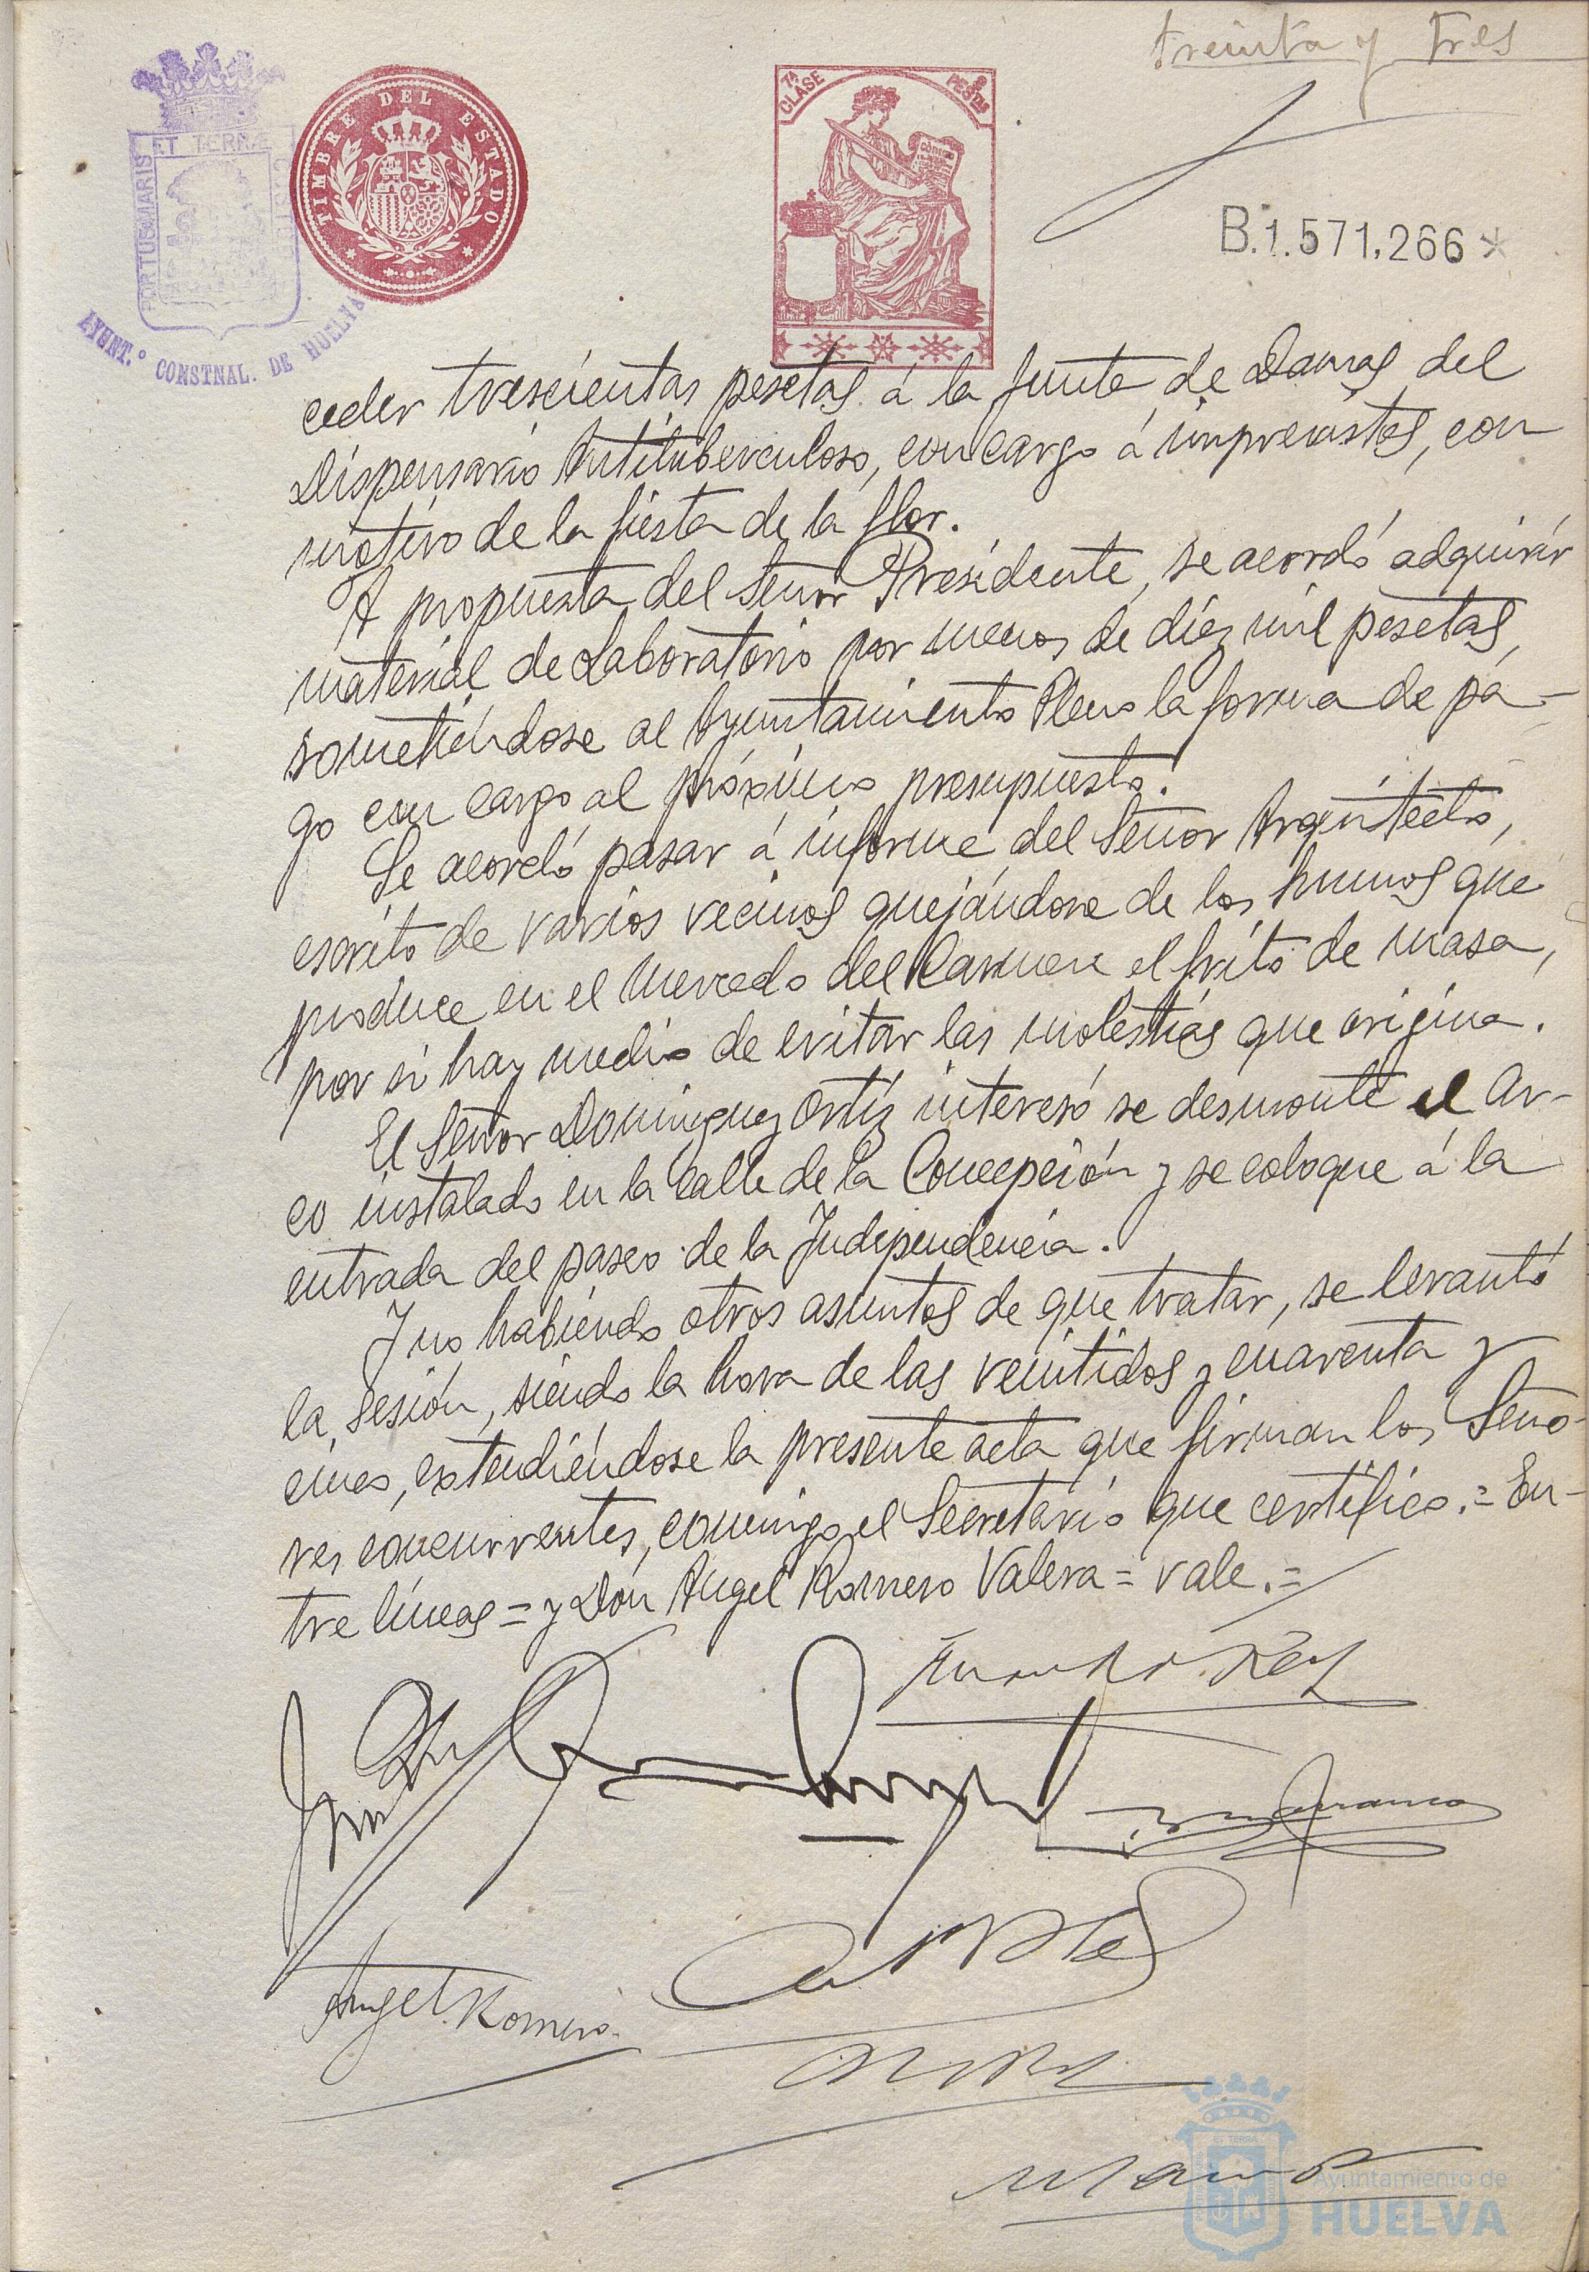 treinta y tres
ET TERRÆ
PORTUS MARIS
AYUNT.º CONSTNAL. DE HUELVA
TIMBRE DEL ESTADO
7ª CLASE
PESTAS
B.1.571.266*
ceder trescientas pesetas á la Junta de Damas del
Dispensario Antituberculoso, con cargo á imprevistos, con
motivo de la fiesta de la flor.
A propuesta del Señor Presidente, se acordó adquirir
material de Laboratorio por menos de diez mil pesetas,
sometiéndose al Ayuntamiento Pleno la forma de pa-
go con cargo al próximo presupuesto.
Se acordó pasar á informe del Señor Arquitecto,
escrito de varios vecinos quejándose de los humos que
produce en el Mercado del Carmen el frito de masa,
por si hay medio de evitar las molestias que origina.
El Señor Dominguez Ortíz interesó se desmonte el ar-
co instalado en la calle de la Concepción y se coloque á la
entrada del paseo de la Independencia.
Y no habiendo otros asuntos de que tratar, se levantó
la sesión, siendo la hora de las veintidos y cuarenta y
cinco, extendiéndose la presente acta que firman los Seño-
res concurrentes, conmigo el Secretario que certifico.= En-
tre líneas = y Don Angel Romero Valera = vale.=
Angel Romero
Ayuntamiento de
HUELVA